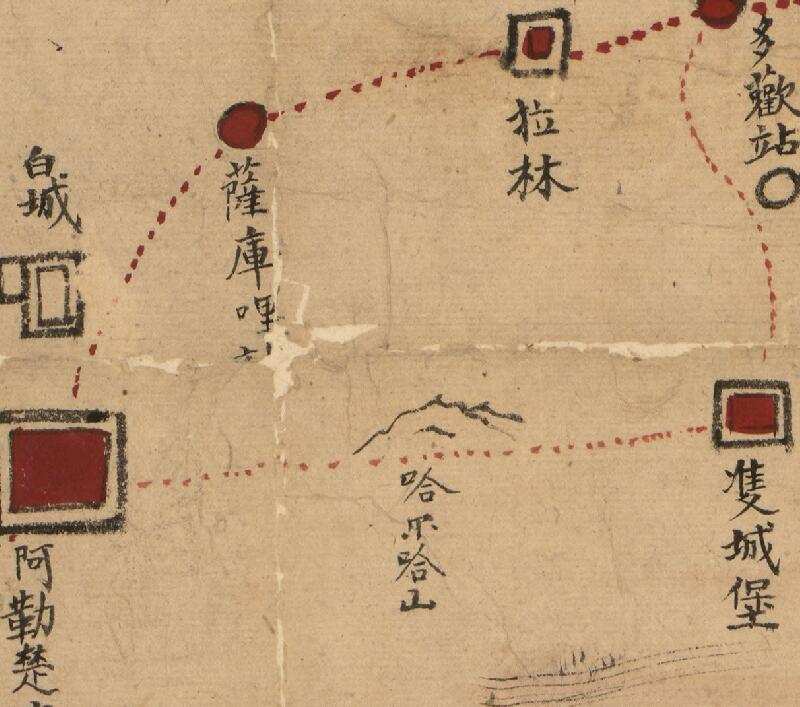 多歡站
拉林
薩庫哩
白城
隻城堡
哈尔哈山
阿勒楚